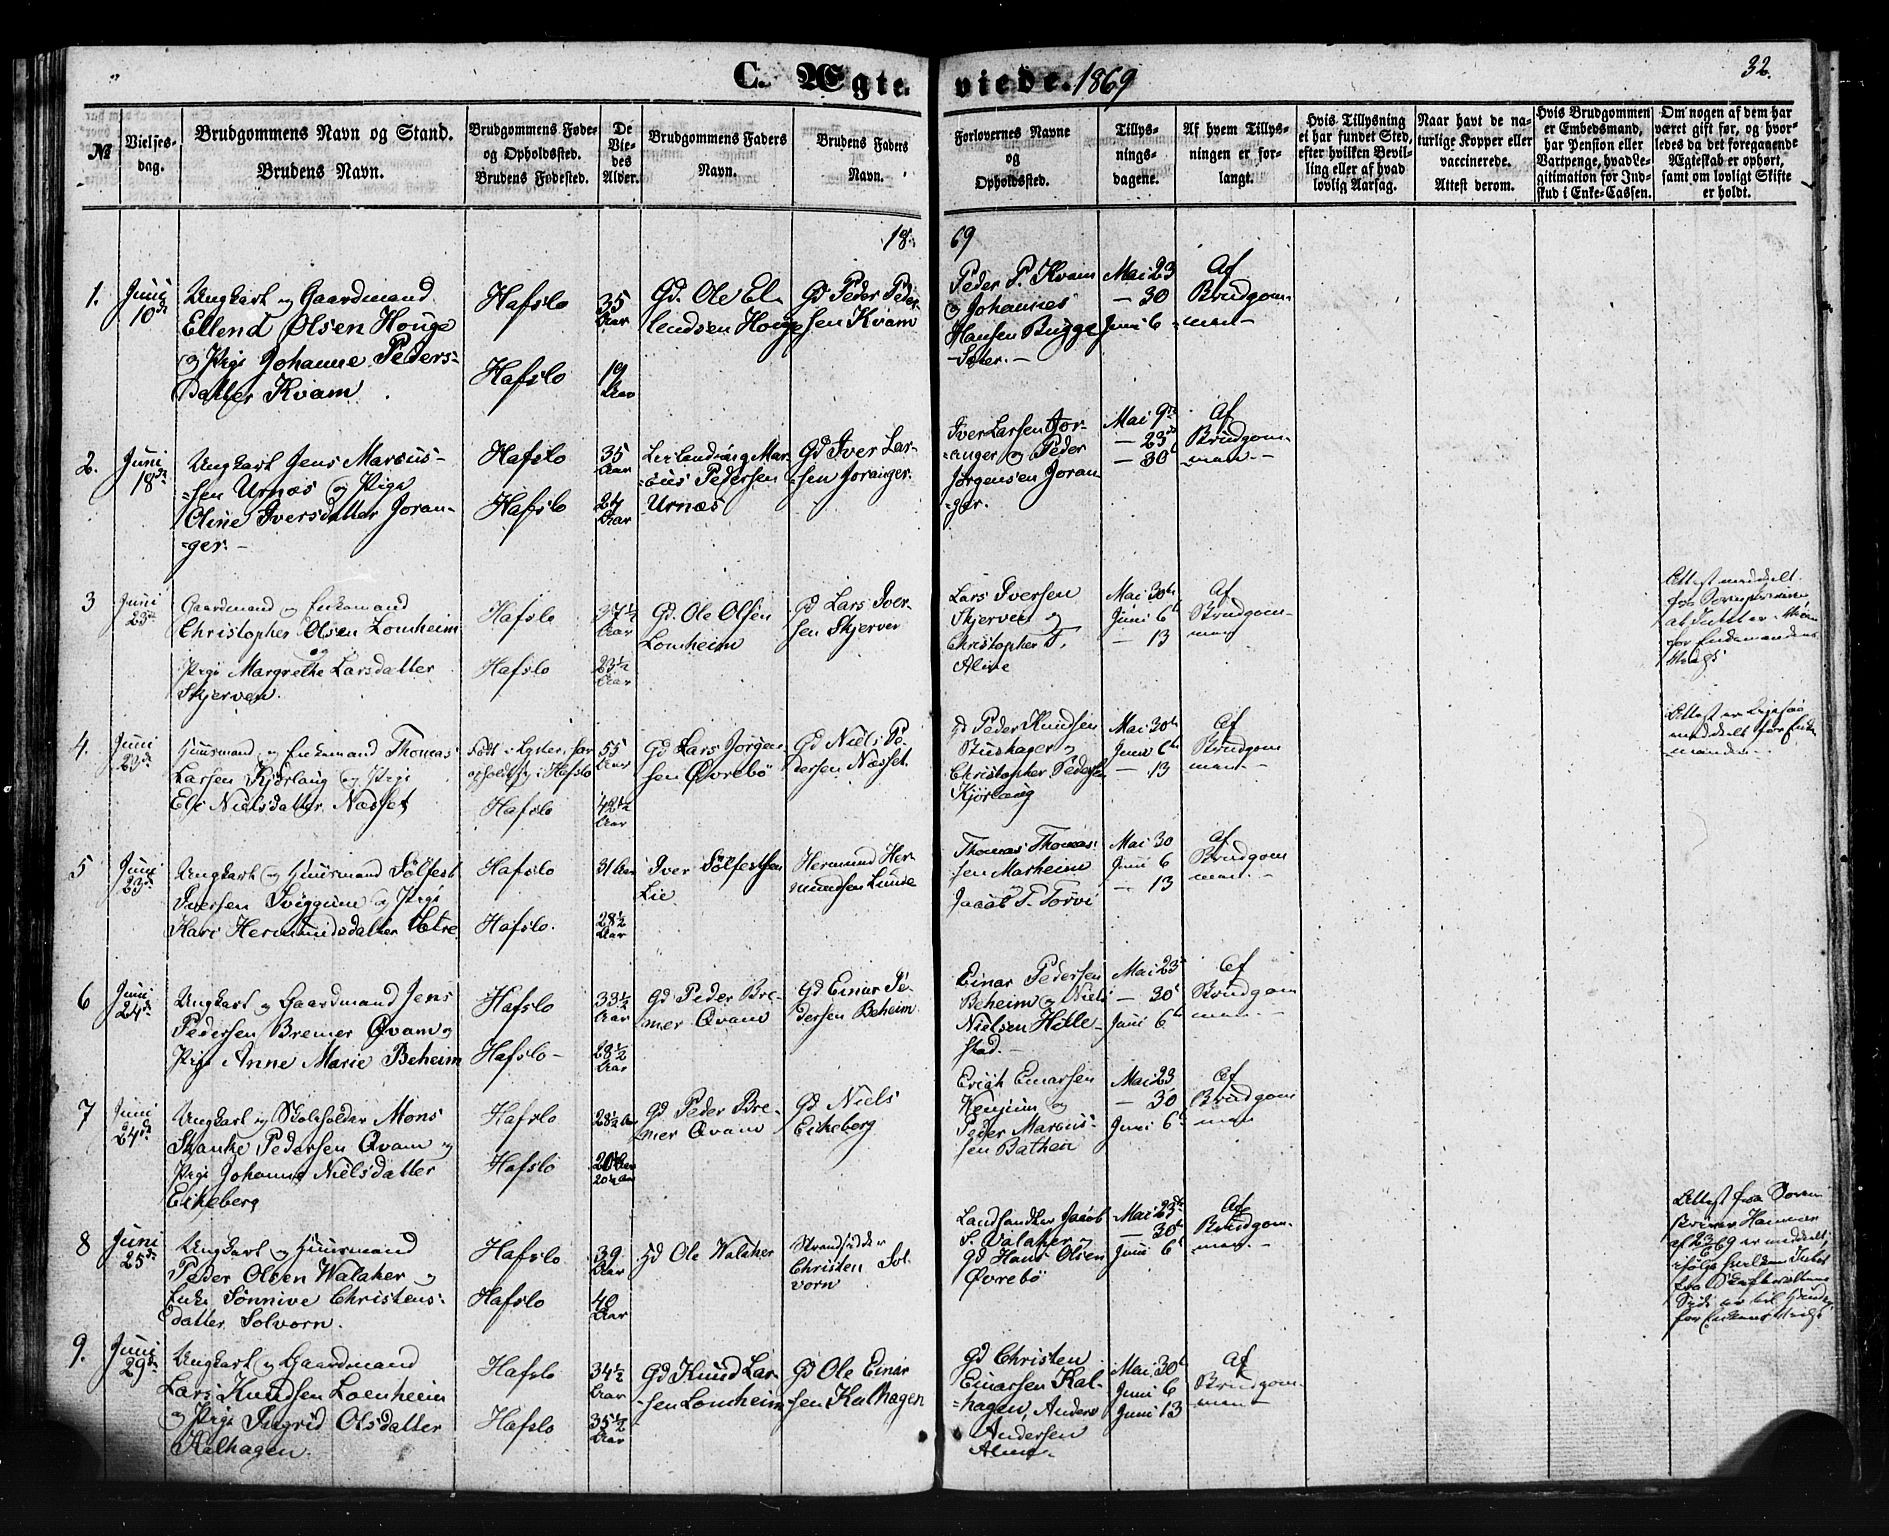 C. Ægte
viede. 1869
32.
№
Vielses-
dag.
Brudgommens Navn og Stand.
Brudens Navn.
Brudgommens Føde-
og Opholdssted.
Brudens Fødested.
De
Vie-
des
Alder.
Brudgommens Faders
Navn.
Brudens Faders
Navn.
Forlovernes Navne
og
Opholdssted.
Tillys-
nings-
dagene.
Af hvem Tillys-
ningen er for-
langt.
Hvis Tillysning
ei har fundet Sted,
efter hvilken Bevil-
ling eller af hvad
lovlig Aarsag.
Naar havt de na-
turlige Kopper eller
vaccinerede.
Attest derom.
Hvis Brudgommen
er Embedsmand,
har Pension eller
Vartpenge, hvad Le-
gitimation for Ind-
skud i Enke-Cassen.
Om nogen af dem har
været gift før, og hvor-
ledes da det foregaaende
Ægteskab er ophørt,
samt om lovligt Skifte
er holdt.
18
69
1.
Juni
10de
Ungkarl og Gaardmand
Ellend Olsen Houge
og Pige Johanne Peders-
datter Kvam
Hafslo
Hafslo
35
Aar
19
Aar
Gd. Ole El-
lendsen Houge
Gd Peder Peder-
sen Kvam
Peder P. Kvam
og Johannes
Hansen Bugge
Sæter.
Mai 23
— 30
Juni 6
Af
Brudgom-
man
2.
Juni
18de
Ungkarl Jens Marcus-
sen Urnæs og Pige
Oline Iversdatter Joran-
ger.
Hafslo
Hafslo
35
Aar
24
Aar
Marcus Pedersen
Urnæs
Gd Iver Lar-
sen Joranger.
Iver Larsen Jor-
anger og Peder
Jørgensen Joran-
ger.
Mai 9de
— 23de
— 30
Af
Brudgom-
man
3
Juni
23de
Gaardmand og Enkemand
Christopher Olsen Lomheim
og
Pige Margrethe Larsdatter
Skjerven.
Hafslo
Hafslo
37½
Aar
23½
Aar
Gd. Ole Olsen
Lomheim
Gd Lars Iver-
sen Skjerven
Lars Iversen
Skjerven og
Christopher T.
Alme
Mai 30te
Juni 6
— 13
Af
Brudgom-
man
Attest meddelt
fra
4.
Juni
23de
Huusmand og Enkemand Thomas
Larsen Kjørlaug og Pige
Eli Nielsdatter Næsset
Født i Lyster, har
ophold sig i Hafslo
Hafslo
55
Aar
42½
Aar
Gd Lars Jørgen-
sen Øvrebö
Gd Niels Pe-
dersen Næsset
Gd Peder Knudsen
Buskager og
Christopher Pedersen
Kjørlaug
Mai 30te
Juni 6te
— 13
Af
Brudgom
man
meddelt for Enke-
manden
5
Juni
23de
Ungkarl og Huusmand Sölfest
Iversen Sviggum og Pige
Kari Hermundsdatter Vetre
Hafslo
Hafslo.
31 Aar
28½
Aar
Iver Sölfestsen
Lie.
Hermund Her-
mundsen Lunde
Thomas Thomas-
sen Marheim
Jacob T. Torvi
Mai 30
Juni 6
— 13
Af
Brudgom
man
6
Juni
24de
Ungkarl og Gaardmand Jens
Pedersen Bremer Qvam og
Pige Anne Marie Beheim
Hafslo
Hafslo
33½
Aar
28½
Aar
Gd Peder Bre-
mer Qvam
Gd Einar Pe-
dersen Beheim
Einar Pedersen
Beheim og Niels
Nielsen Hille-
stad.
Mai 23de
— 30te
Juni 6te
Af
Brudgom
man
7
Juni
24de
Ungkarl og Skoleholder Mons
Skanke Pedersen Qvam og
Pige Johanne Nielsdatter
Eikeberg
Hafslo
Hafslo
28½ Aar
20½ Aar
Gd Peder Bre-
mer Qvam
Gd Niels
Eikeberg
Erich Einarsen
og
Peder Marcus-
sen Bathen
Mai 23
— 30
Juni 6te
Af
Brudgom
man
8
Juni
25de
Ungkarl og Huusmand
Peder Olsen Walaker og
Enke Sönnive Christens-
datter Solvorn.
Hafslo
Hafslo
39
Aar
40
Aar
Gd Ole Walaker
Strandsidder
Christen Sol-
vorn
Landhandler Jacob
S. Valaker og
Gd Hans Olsen
Øvrebö
Mai 23de
— 30te
Juni 6te
Af
Brudgom-
man
Attest fra Soren-
skriver
9.
Juni
29de
Ungkarl og Gaardmand
Lars Knudsen Loenheim
og Pige Ingrid Olsdatter
Kalhagen.
Hafslo
Hafslo
34½
Aar
35½
Aar
Gd Knud Lar-
sen Lomheim
Gd Ole Einar-
sen Kalhagen
Gd Christen
Einarsen Kal-
hagen, Anders
Andersen
Alme
Mai 30te
Juni 6
Juni 13
Af
Brudgom-
man